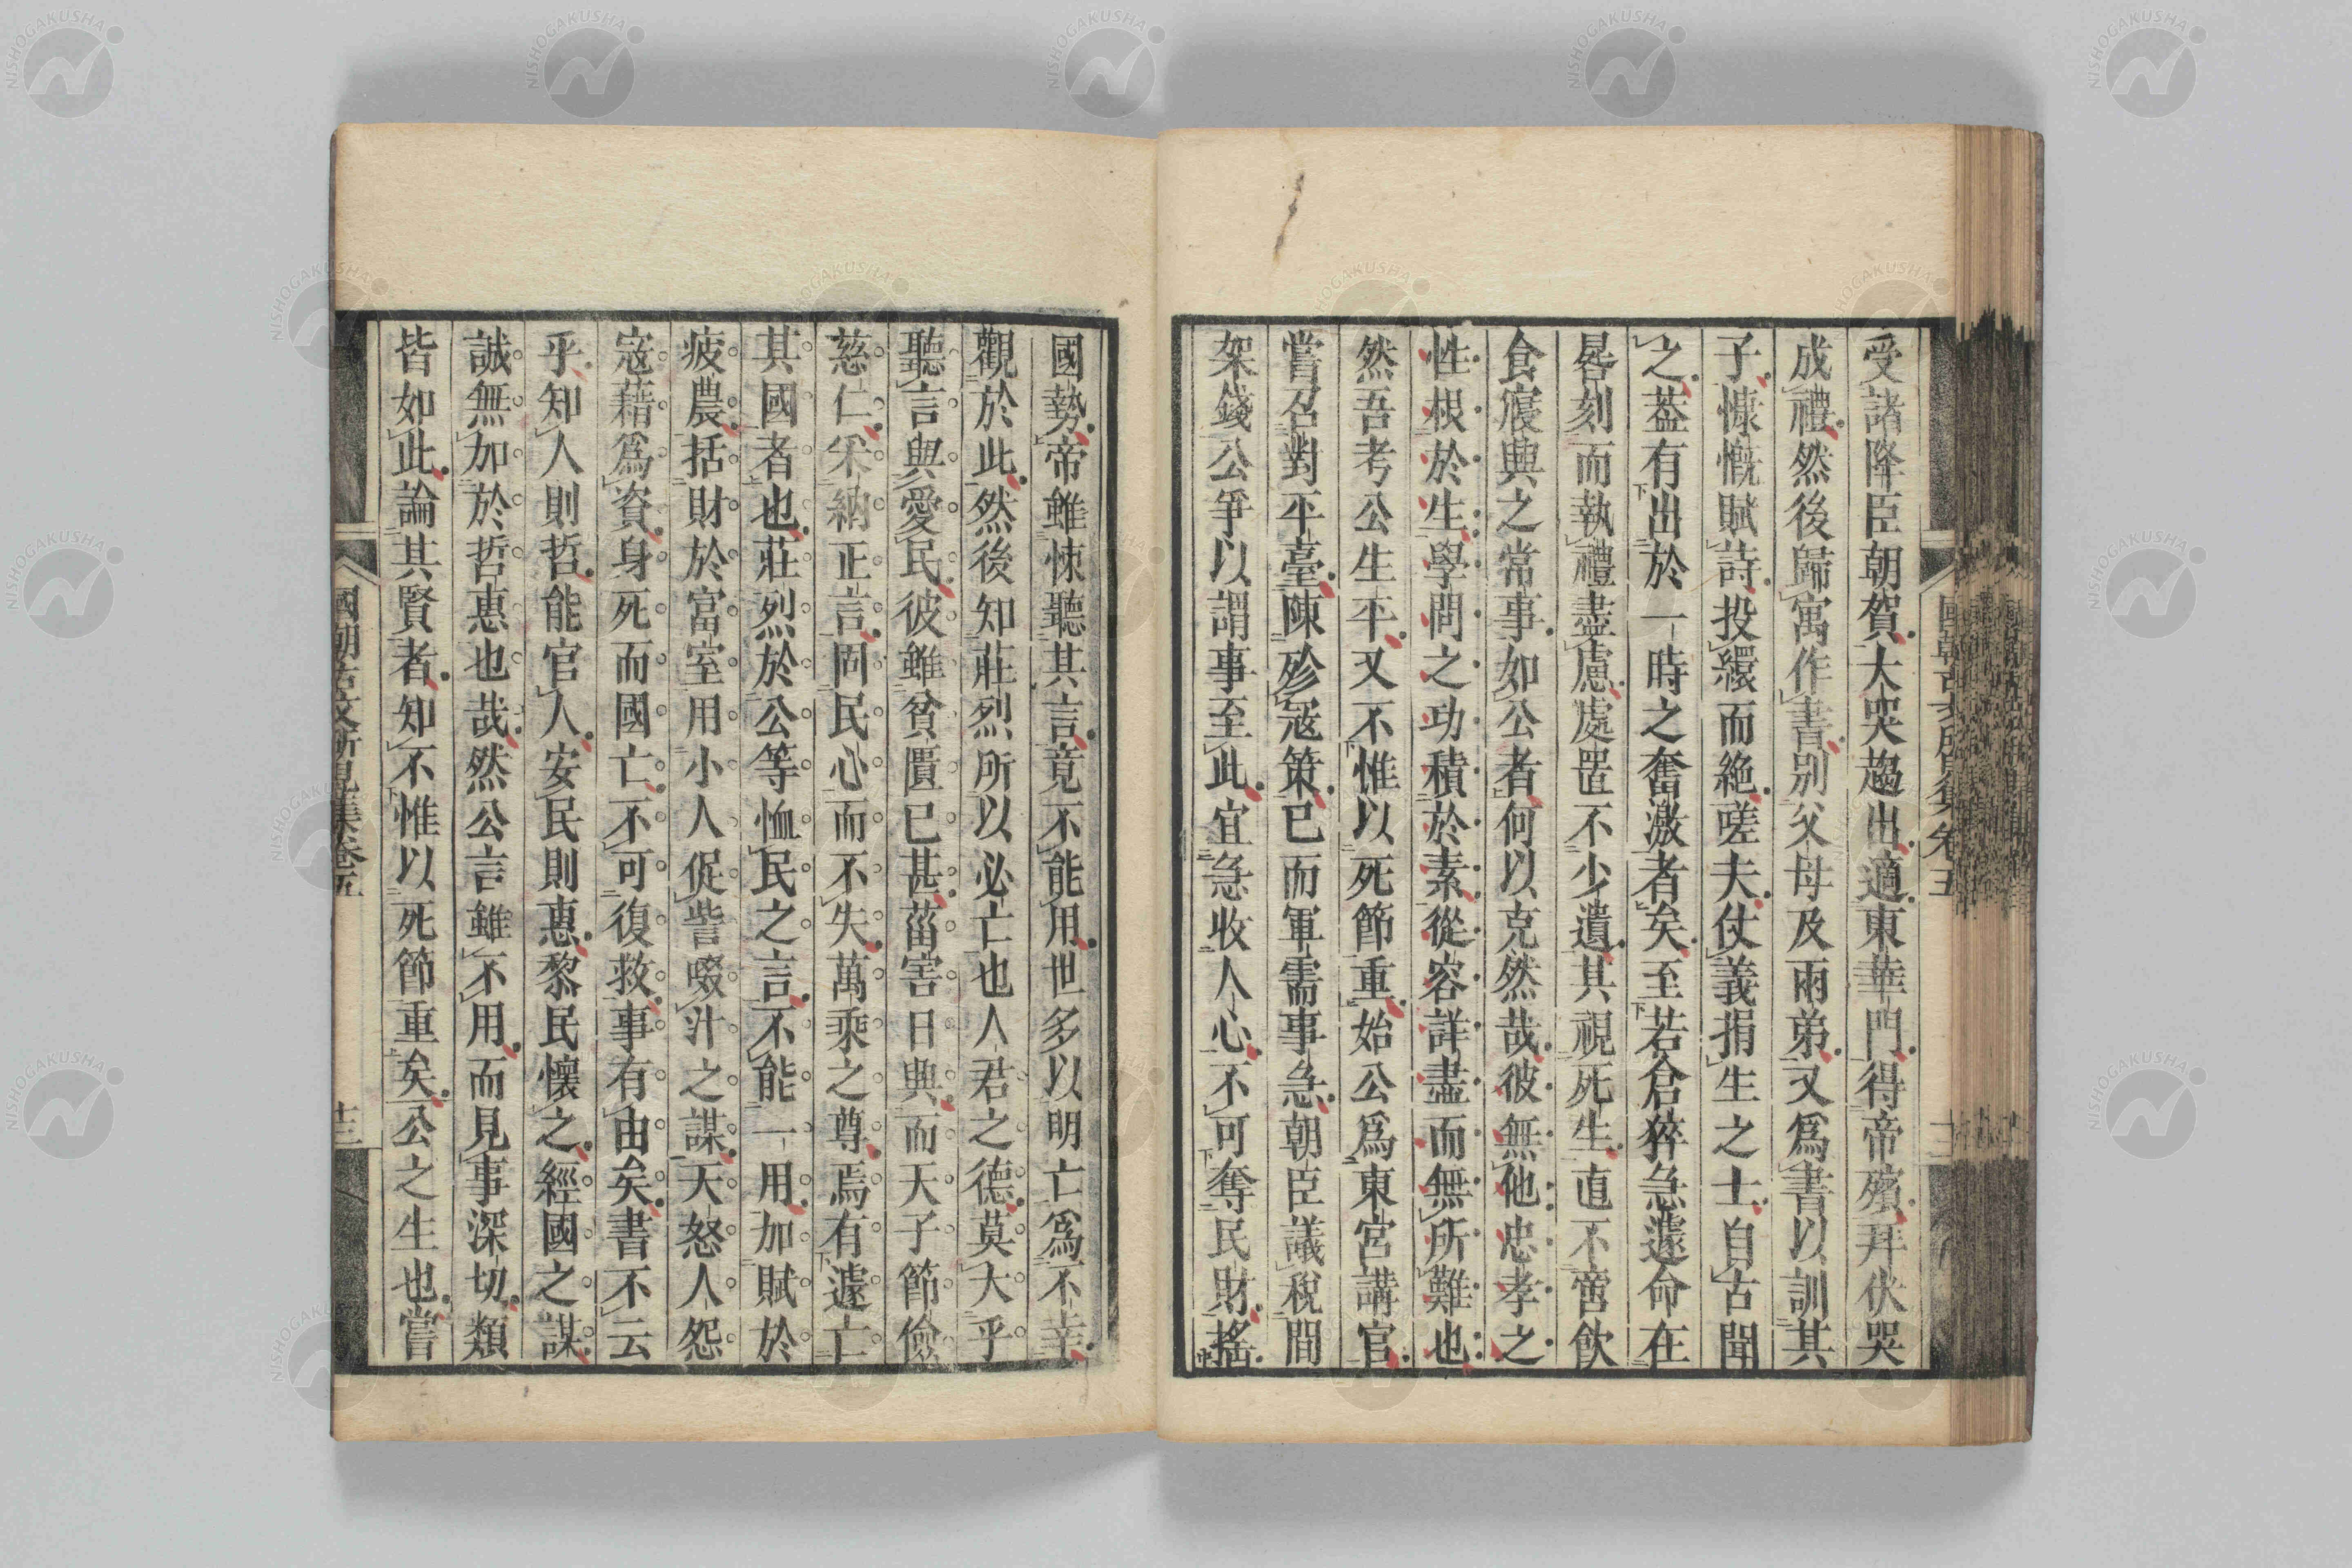 受諸降臣朝賀大哭趨出適東華門得帝殯拜伏哭
成禮然後歸寓作書别父母及兩弟又爲書以訓其
子慷慨賦詩投繯而絶嗟夫仗義捐生之士自古聞
之葢有出於一時之奮激者矣至若倉猝急遽命在
晷刻而執禮盡慮處置不少遺其視死生直不啻飲
食寢興之常事如公者何以克然哉彼無他忠孝之
性根於生學問之功積於素從容詳盡而無所難也
然吾考公生平又不惟以死節重始公爲東宮講官
嘗召對平臺陳殄寇策已而軍需事急朝臣議稅間
架錢公爭以謂事至此宜急收人心不可奪民財搖
國朝古文所見集卷五
國勢帝雖悚聽其言竟不能用世多以明亡爲不幸
觀於此然後知莊烈所以必亡也人君之德莫大乎
聽言與愛民彼雖貧匱已甚菑害日興而天子節儉
慈仁采納正言固民心而不失萬乘之尊焉有遽亡
其國者也莊烈於公等恤民之言不能一用加賦於
疲農括財於富室用小人促訾啜汁之謀天怒人怨
寇藉爲資身死而國亡不可復救事有由矣書不云
乎知人則哲能官人安民則惠黎民懷之經國之謀
誠無加於哲惠也哉然公言雖不用而見事深切類
皆如此論其賢者知不惟以死節重矣公之生也嘗
國朝古文所見集卷五
十三